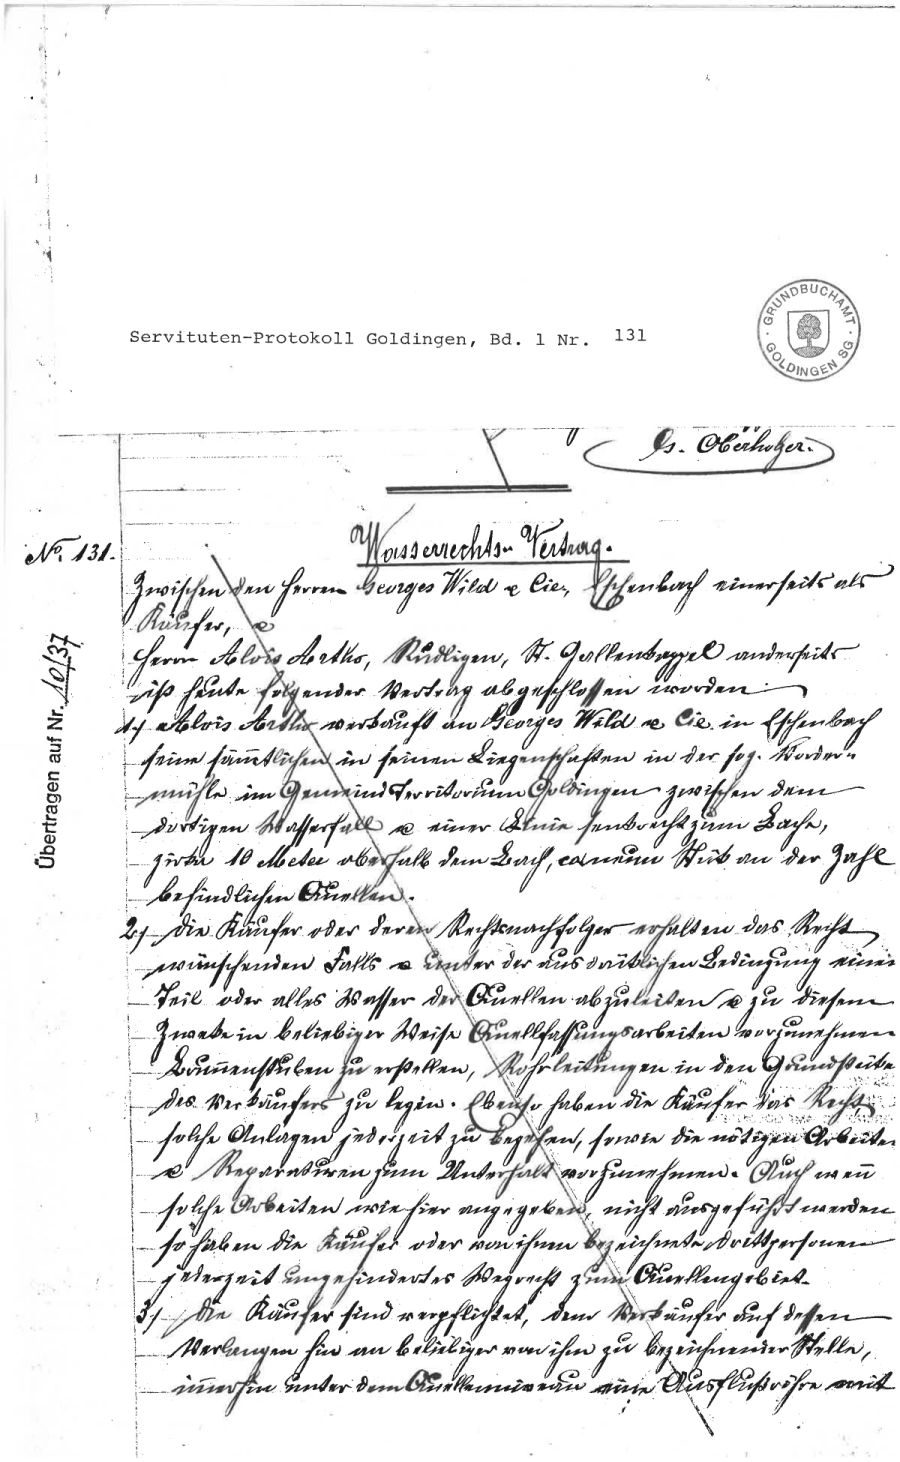 GRUNDBUCHAMT
GOLDINGEN SG
Servituten-Protokoll Goldingen, Bd. 1 Nr. 131
Oberholzer.
No. 131.
Wasserrechts-Vertrag.
Zwischen den Herren Georges Wild & Cie, Eschenbach einerseits als
Käufer, &
Herrn Alois Artho, Rüdligen, St. Gallenkappel anderseits
ist heute folgender Vertrag abgeschlossen worden:
1.) Alois Artho verkauft an Georges Wild & Cie. in Eschenbach
seine sämmtlichen in seinen Liegenschaften in der sog. Vorder-
mühle im Gemeind-Territorium Goldingen zwischen dem
dortigen Wasserfall & einer Linie senkrecht zum Bache,
zirka 10 Meter oberhalb dem Bach, ca neun Stük an der Zahl
befindlichen Quellen.
2.) Die Käufer oder deren Rechtsnachfolger erhalten das Recht
wünschenden Falls & unter der ausdrücklichen Bedingung einen
Teil oder alles Wasser der Quellen abzuleiten & zu diesem
Zweke in beliebiger Weise Quellfassungsarbeiten vorzunehmen
Brunnenstuben zu erstellen, Rohrleitungen in den Grundstüke
des Verkäufers zu legen. Ebenso haben die Käufer das Recht,
solche Anlagen jederzeit zu begehen, sowie die nötigen Arbeiten
& Reparaturen zum Unterhalt vorzunehmen. Auch wenn
solche Arbeiten wie hier angegeben, nicht ausgeführt werden
so haben die Käufer oder von ihnen bezeichnete Drittpersonen
jederzeit ungehindertes Wegrecht zum Quellengebiet.
3.) Die Käufer sind verpflichtet, dem Verkäufer auf dessen
Verlangen hin an beliebiger von ihm zu bezeichnender Stelle,
immerhin unter dem Quellenniveau eine Ausflußröhre mit
Übertragen auf Nr. 10/37